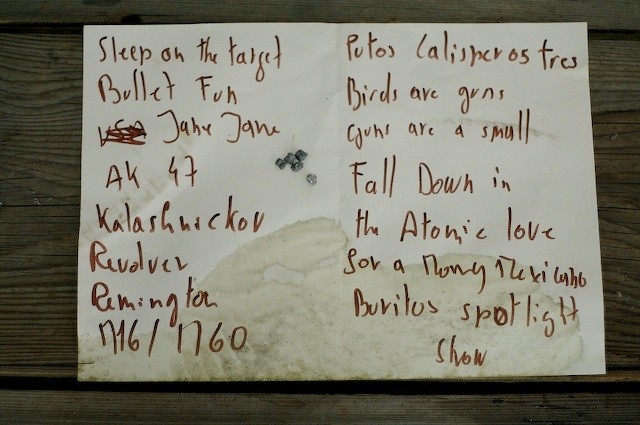 Sleep on the target
Bullet Fun
Jane Jane
AK 47
Kalashnickov
Revolver
Remington
M16 / M60
Putos Calisperos tres
Birds are guns
Guns are a small
Fall Down in
the Atomic love
For a Mony
Buritos spotlight
Show